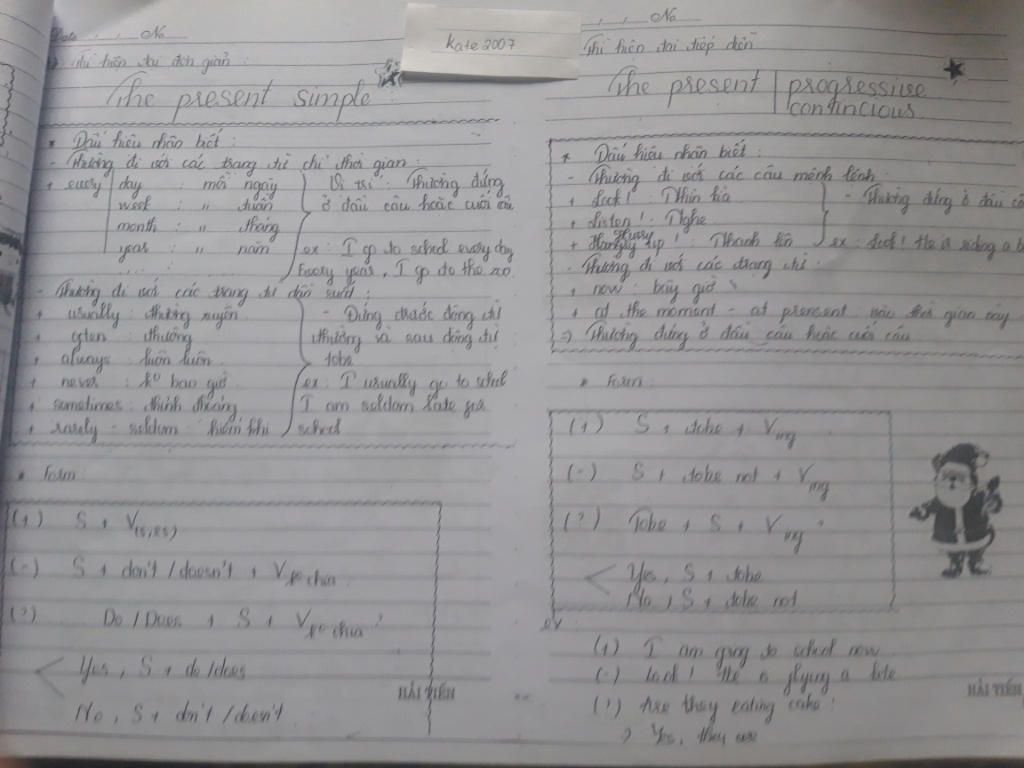 Date , , No
kate 2007
Thì hiện tại đơn giản:
The present simple
* Dấu hiệu nhân biết:
- Thường đi với các trạng từ chỉ thời gian:
+ every day : mỗi ngày
week : " tuần
month : " tháng
year : " năm
... :
Vị trí: Thường đứng
ở đầu câu hoặc cuối câu
ex: I go to school every day
Every year, I go to the zoo.
- Thường đi với các trạng từ tần suất:
+ usually: thường xuyên
+ often : thường
+ always: luôn luôn
+ never : ko bao giờ
+ sometimes: thỉnh thoảng
+ rarely - seldom: hiếm khi
- Đứng trước động từ
thường và sau động từ
tobe
ex: I usually go to school
I am seldom late for
school
* Form:
(+) S + V(s,es)
(-) S + don't / doesn't + Vko chia
(?) Do / Does + S + Vko chia ?
Yes, S + do/does
No, S + don't / doesn't
HẢI TIẾN
, , No
Thì hiện tại tiếp diễn
The present progressive
contincious
* Dấu hiệu nhân biết:
- Thường đi với các câu mệnh lệnh:
+ Look! : Nhìn kìa
+ Listen! : Nghe
+ Hurry up! : Nhanh lên
- Thường đứng ở đầu câ
ex: Look! He is riding a b
- Thường đi với các trạng từ:
+ now : bây giờ
+ at the moment - at present: vào thời gian này
=> Thường đứng ở đầu câu hoặc cuối câu
* Form:
(+) S + tobe + Ving
(-) S + tobe not + Ving
(?) Tobe + S + Ving ?
Yes, S + tobe
No, S + tobe not
ex:
(+) I am going to school now
(-) Look! He is flying a kite
(?) Are they eating cake?
Yes, they are
HẢI TIẾN